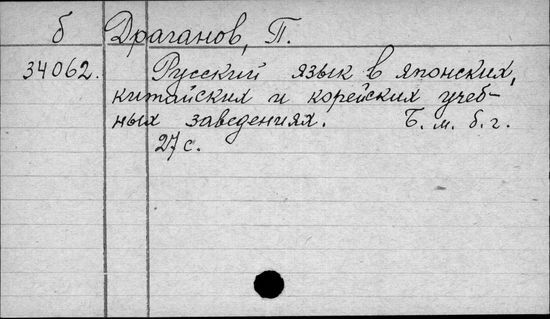 б Драганов, П.
34062. Русский язык в японских,
китайских и корейских учеб-
ных заведениях. Б. м. б. г.
27 с.